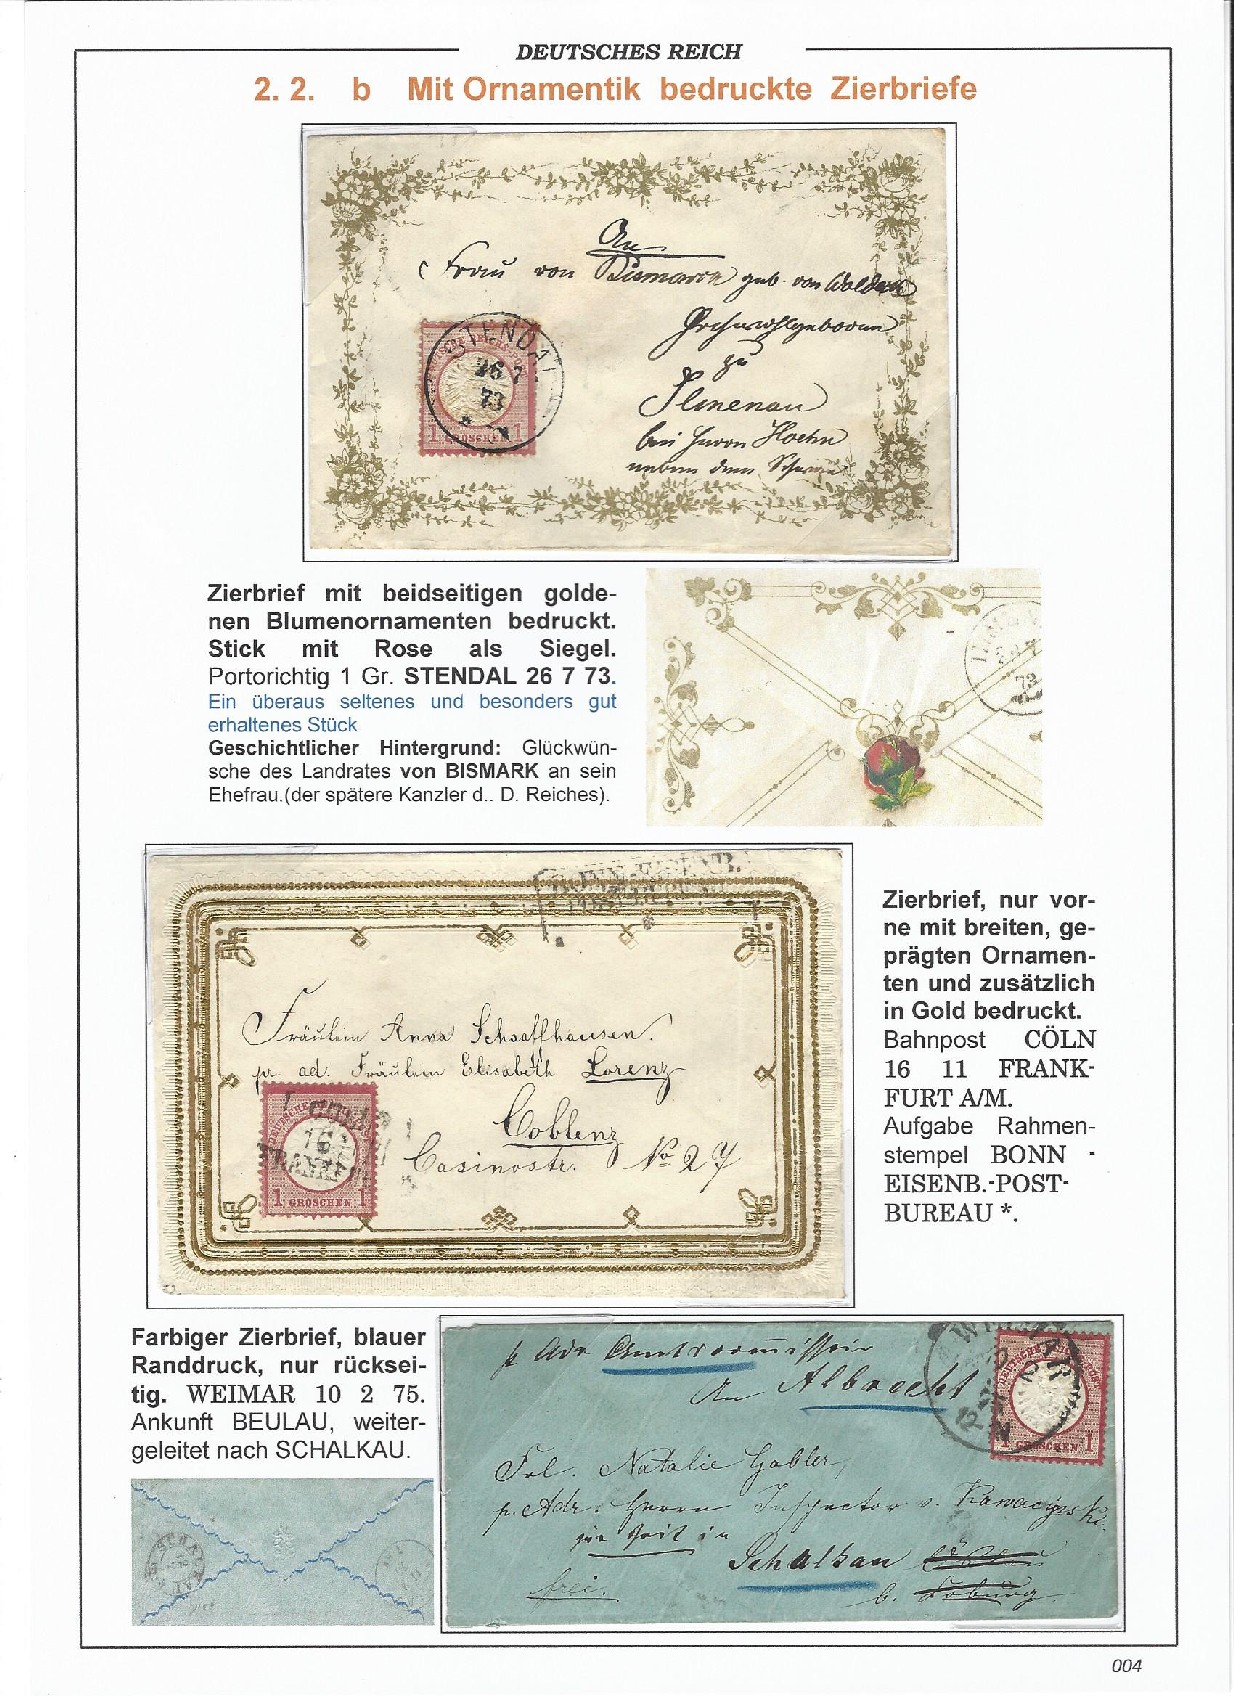 DEUTSCHES REICH
2. 2. b Mit Ornamentik bedruckte Zierbriefe
An
Frau von Bismarck geb von
Hochwohlgeboren
zu
Ilmenau
bei Herrn Hoehn
neben dem
STENDAL
26 7
73
1 GROSCHEN 1
Zierbrief mit beidseitigen golde-
nen Blumenornamenten bedruckt.
Stick mit Rose als Siegel.
Portorichtig 1 Gr. STENDAL 26 7 73.
Ein überaus seltenes und besonders gut
erhaltenes Stück
Geschichtlicher Hintergrund: Glückwün-
sche des Landrates von BISMARK an sein
Ehefrau.(der spätere Kanzler d.. D. Reiches).
Fräulein Anna Schaafhausen.
pr ad. Fräulein Elisabeth Lorenz
Coblenz
Casinostr. No 27
1 GROSCHEN 1
Zierbrief, nur vor-
ne mit breiten, ge-
prägten Ornamen-
ten und zusätzlich
in Gold bedruckt.
Bahnpost CÖLN
16 11 FRANK-
FURT A/M.
Aufgabe Rahmen-
stempel BONN -
EISENB.-POST-
BUREAU *.
Farbiger Zierbrief, blauer
Randdruck, nur rücksei-
tig. WEIMAR 10 2 75.
Ankunft BEULAU, weiter-
geleitet nach SCHALKAU.
An Albrecht
WEIMAR
1 GROSCHEN 1
Frl. Natalie Gabler,
p. Adr. Herrn Inspector v.
zur Zeit in
Schalkau
frei. b. Coburg
004